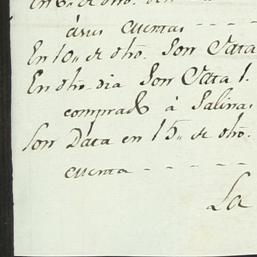 en 6,, de dho. 
á sus cuentas - - - -
En 10,, de dho. Son Data
En dho dia Son Data 1.
comprad á Salinas
Son Data en 15,, de dho.
cuenta - - - - -
La